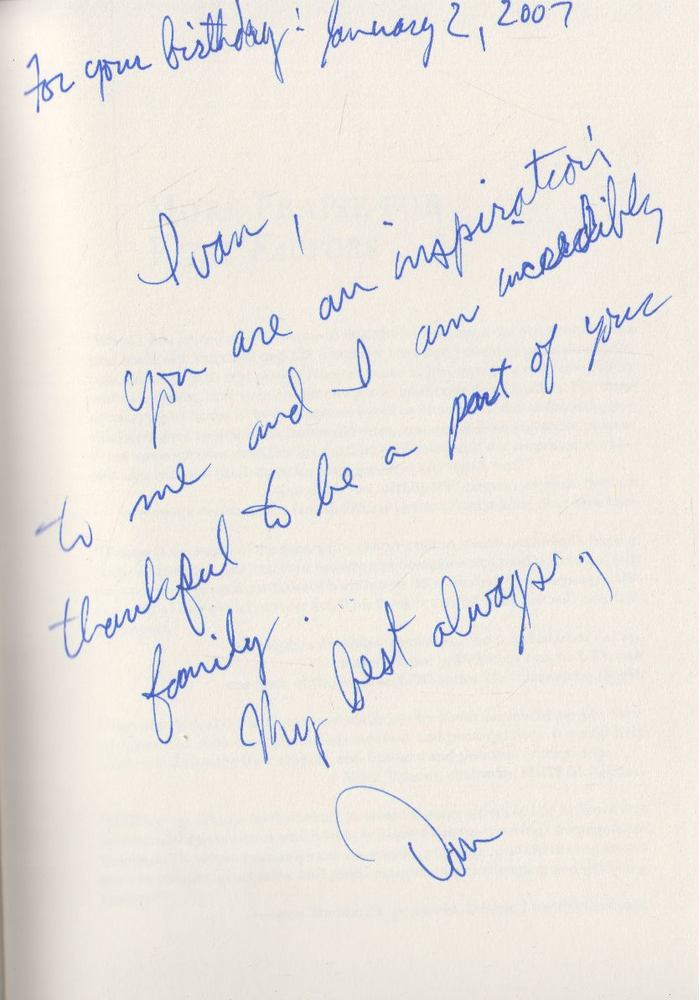 For your birthday! January 2, 2007
Ivan,
You are an inspiration
to me and I am incredibly
thankful to be a part of your
family.
My best always,
Dan